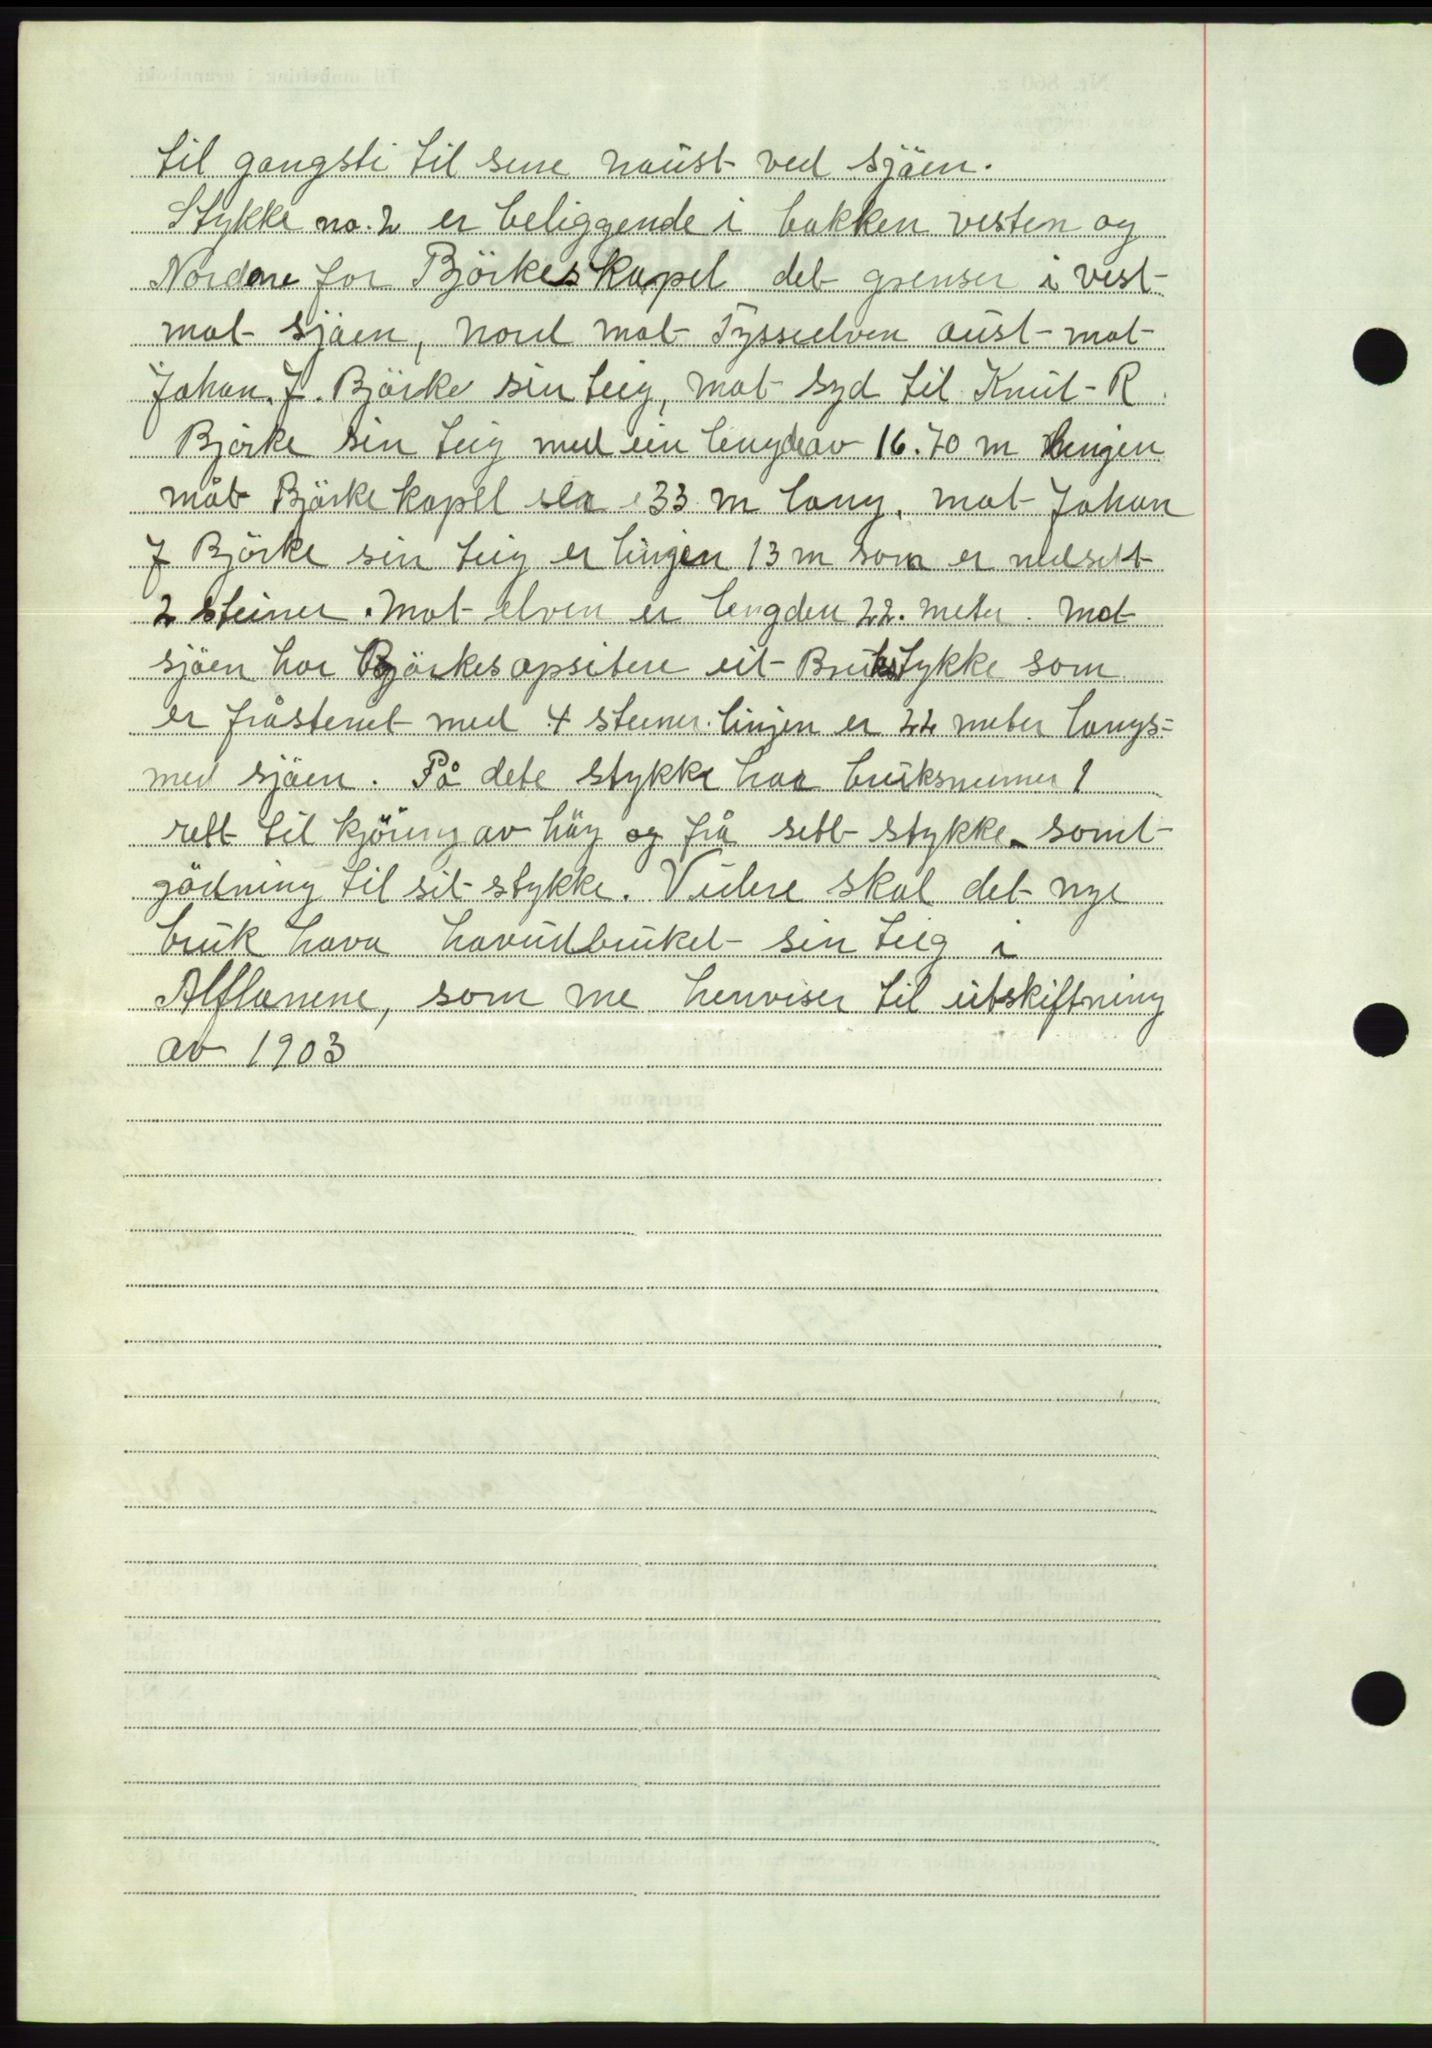 til gangsti til sine naust ved sjöen.
Stykke no. 2 er beliggende i bakken vesten og
Nordare for Björkeskapel det grenser i vest
mot sjöen, nord mot Tysselven aust mot
Johan. J. Björke sin teig, mot syd til Knut R
Björke sin teig med ein lengde av 16.70 m Lengen
mot Björke kapel 33 m lang. mot Johan
J Björke sin teig er linjen 13 m som er nedsett
2 steiner. Mot elven er lengden 22. meter. Mot
sjöen har Björkes opsitere eit Brukstykke som
er fråstenet med 4 steiner. linjen er 22 meter langs-
med sjöen. På dete stykke har bruksnumer 1
rett til kjöring av höy og frå sett stykke. somt
gödning til sit stykke. Videre skal det nye
bruk hava havudbruket sin teig i
Alflanene, som me henviser til utskiftning
av 1903